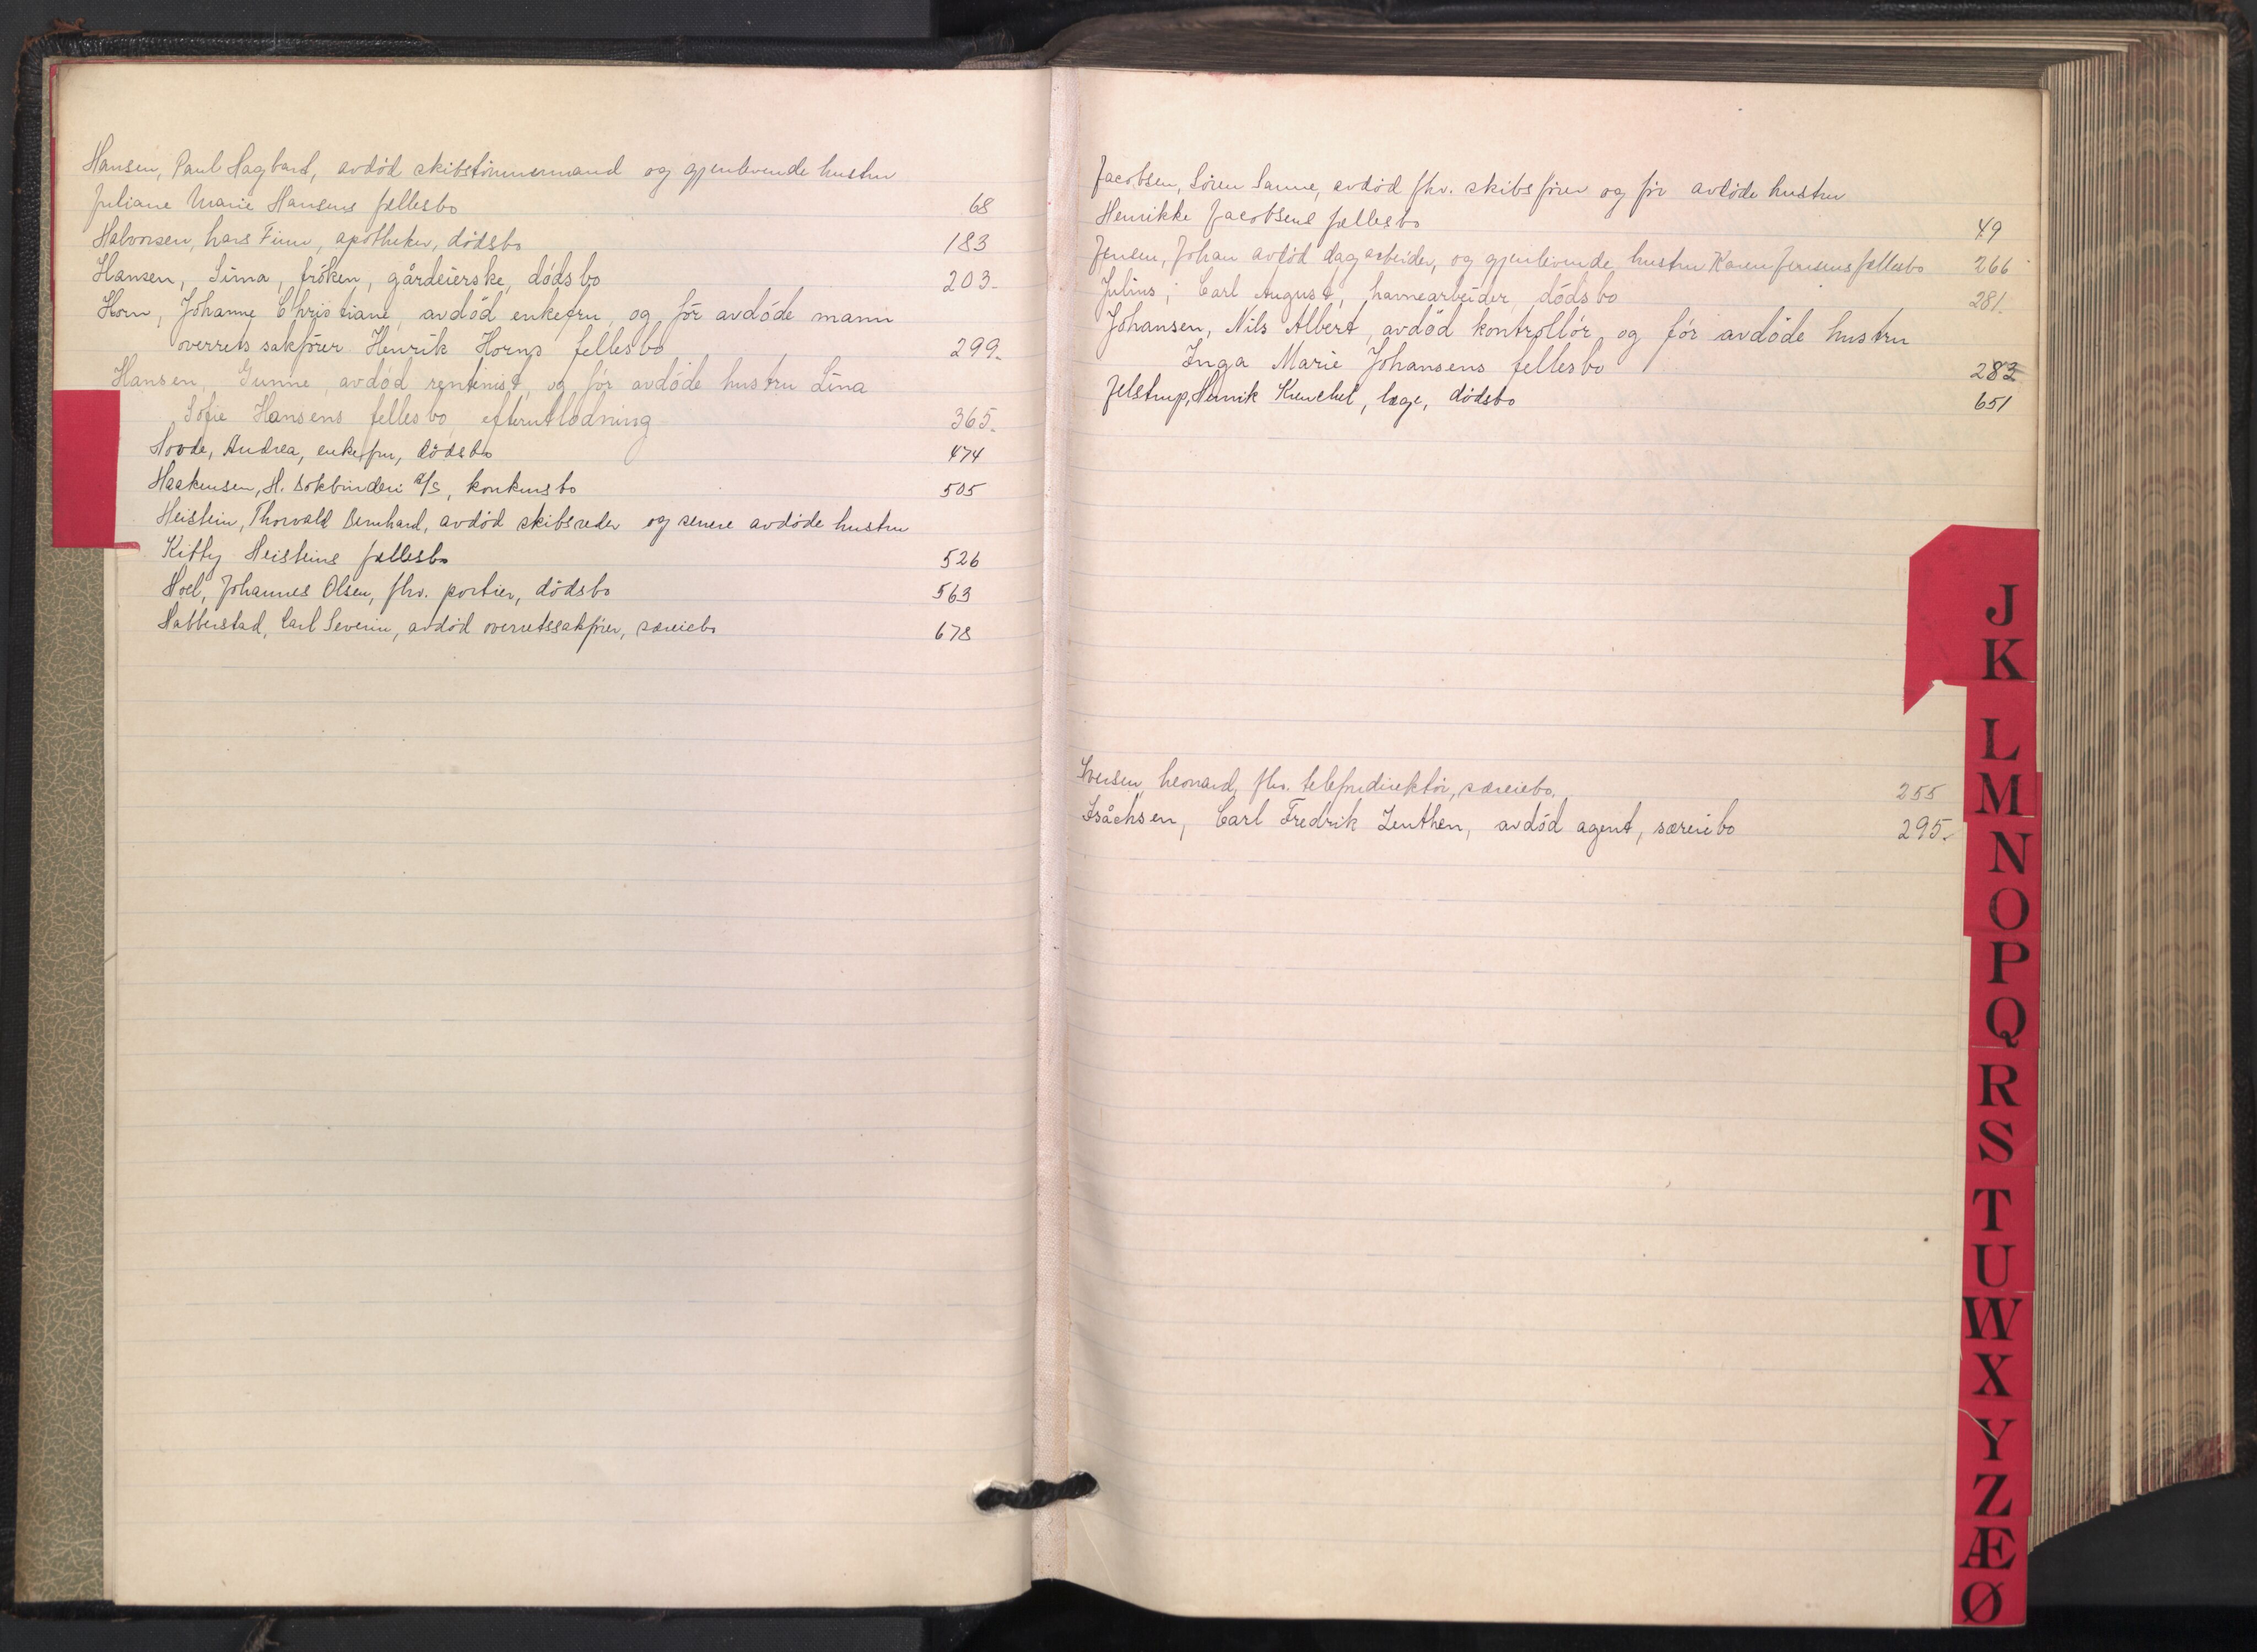 Hansen, Paul Hagbart, avdöd skibstömmermand og gjenlevende hustru
Juliane Marie Hansens fællesbo 68
Halvorsen, Lars Finn, apotheker, dödsbo 183
Hansen, Sina, fröken, gårdeierske, dödsbo 203.
Horn, Johanne Christiane, avdöd enkefru, og för avdöde mann
overrets sakförer Henrik Horns fellesbo 299.
Hansen, Gunne, avdöd rentenist, og för avdöde hustru Lina
Sofie Hansens fellesbo, efterutlodning 365.
Hovde, Andrea, enkefru, dödsbo 474
Haakensen, H. Bokbinderi A/S, konkursbo 505
Heistein, Thorvald Bernhard, avdöd skibsreder og senere avdöde hustru
Kitty Heisteins fællesbo 526
Hoel, Johannes Olsen, fhv. portier, dödsbo 563
Hatterstad, Carl Severin, avdöd overretssakförer, særeiebo 678
Jacobsen, Sören Sanne, avdöd fhv. skibsförer og för avdöde hustru
Henrikke Jacobsens fællesbo 49
Jensen, Johan avdöd dagarbeider, og gjenlevende hustru Karen Jensens fællesbo 266
Julius, Carl August, havnearbeider, dödsbo 281.
Johansen, Nils Albert, avdöd kontrollör, og för avdöde hustru
Inga Marie Johansens fellesbo 283
Jelstrup, Henrik, læge, dödsbo 651
Iversen, Leonard, fhv. telefondirektör, særeiebo. 255
Isåchsen, Carl Fredrik Zeuthen, avdöd agent, særeiebo 295.
J
K
L
M
N
O
P
Q
R
S
T
U
W
X
Y
Z
Æ
Ø